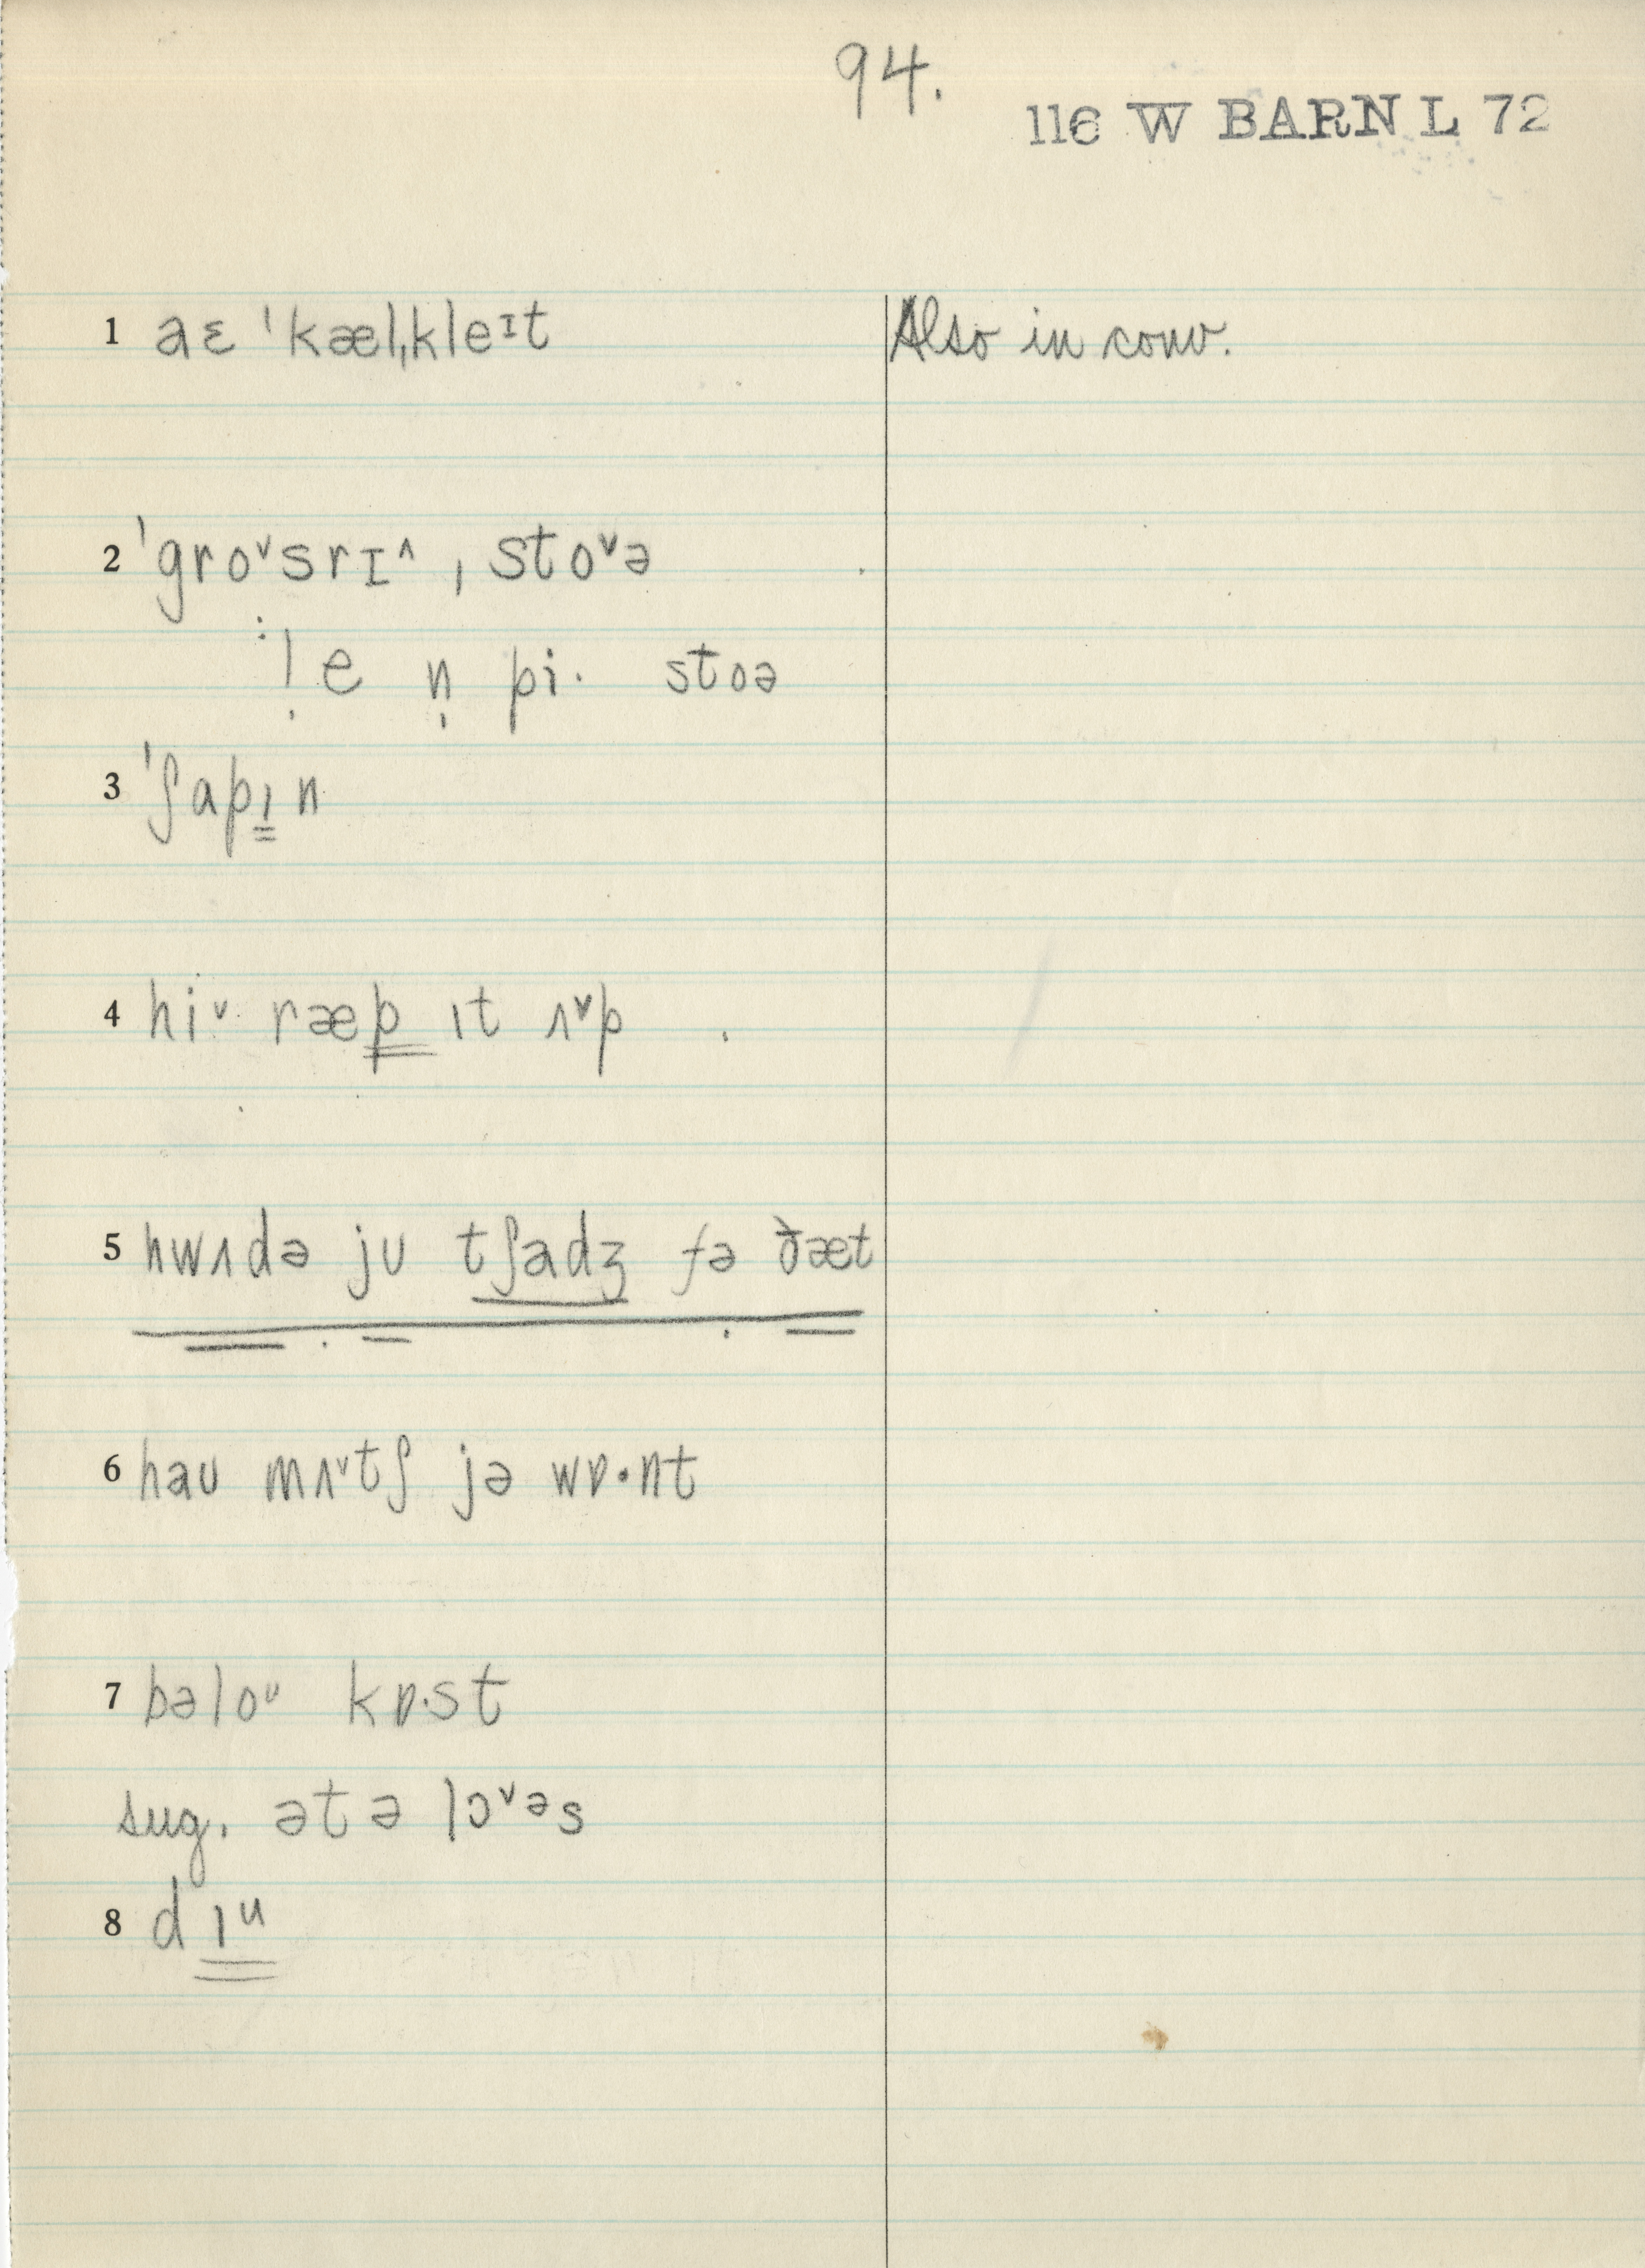 94.
116 W BARN L 72
1 aɛ ˈkælˌkleɪt
Also in conv.
2 ˈgroᵛsrɪ^ ˌstoᵛə
: ! e n̩ pi· stoə
3 ˈʃapɪn
4 hiᵛ· ræp ɪt ʌᵛp
5 hwʌdə jʊ tʃadʒ fə ðæt
6 haʊ mʌᵛtʃ jə wɒ·nt
7 bəloᶸ kɒ·st
sug. ətə lɔᵛəs
8 dɪᵘ